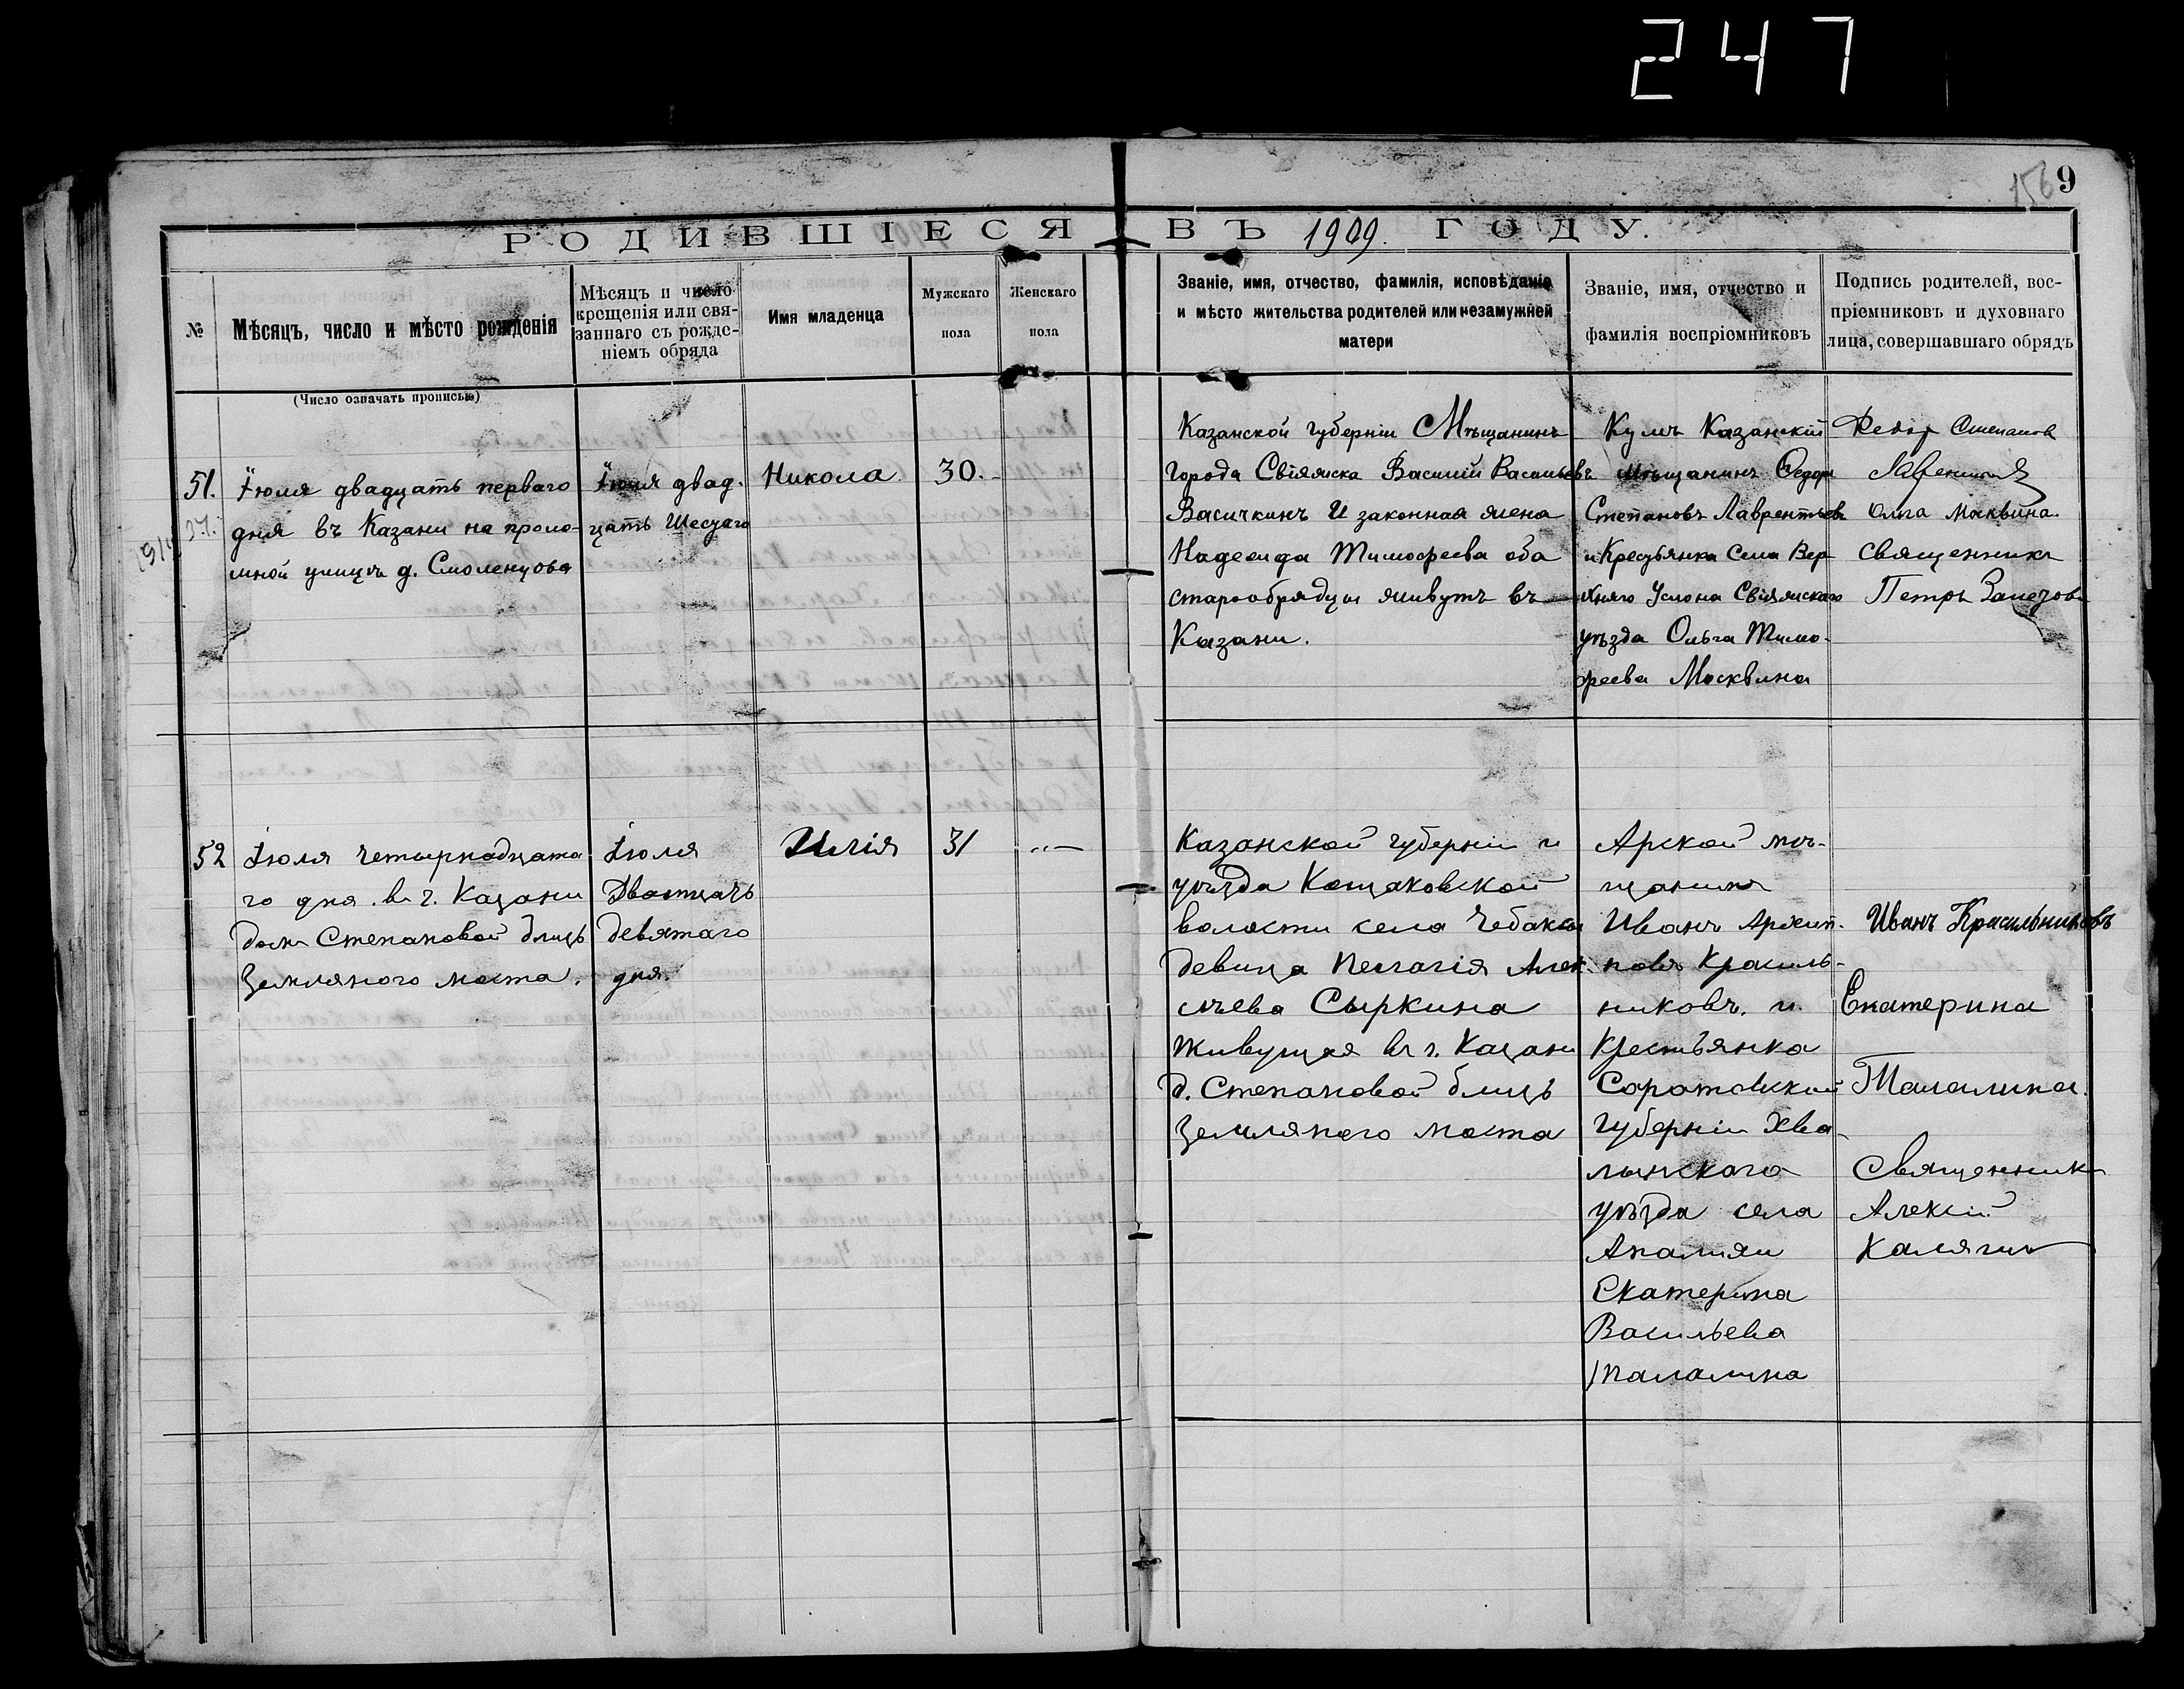 247
156 9
РОДИВШІЕСЯ ВЪ 1909. ГОДУ.
№
Мѣсяцъ, число и мѣсто рожденія
Мѣсяцъ и число
крещенія или свя-
заннаго съ рожде-
ніемъ обряда
Имя младенца
Мужскаго
пола
Женскаго
пола
Званіе, имя, отчество, фамилія, исповѣданіе
и мѣсто жительства родителей или незамужней
матери
Званіе, имя, отчество и
фамилія воспріемниковъ
Подпись родителей, вос-
пріемниковъ и духовнаго
лица, совершавшаго обрядъ
(Число означать прописью)
51.
Іюля двадцать перваго
дня въ Казани на проло-
мной улицѣ д. Смоленцова
Іюля двад-
цать Шестаго
Никола
30.
Казанской губерніи Мѣщанинъ
города Свіяжска Василій Васильевъ
Васичкинъ И законная жена
Надежда Тимофеева оба
старообрядцы живутъ въ
Казани.
Кумъ Казанскій
мѣщанинъ Ѳедоръ
Степановъ Лаврентьевъ
и Крестьянка Села Вер-
хняго Услона Свіяжскаго
уѣзда Ольга Тимо-
феева Москвина
Федор Степанов
Ольга Москвина.
священникъ
Петръ Залетовъ
52
Іюля четырнадцата
го дня. въ г. Казани
домъ Степановой близь
Землянаго моста.
Іюля
Двадцать
девятаго
дня.
Илія
31
"—
Казанской губерніи и
уѣзда Кощаковской
волости села Чебакса
девица Пелагія Алек-
сѣева Сыркина
живущая въ г. Казани
д. Степановой близь
Землянаго моста
Арской мѣ-
щанинъ
Иванъ Архип-
повъ Красиль-
никовъ. и
Крестьянка
Саратовской
губерніи Хва-
лынскаго
уѣзда села
Апалихи
Екатерина
Васильева
Талалина
Иванъ Красильниковъ
Екатерина
Талалина.
Священникъ
Алексій
Калягин